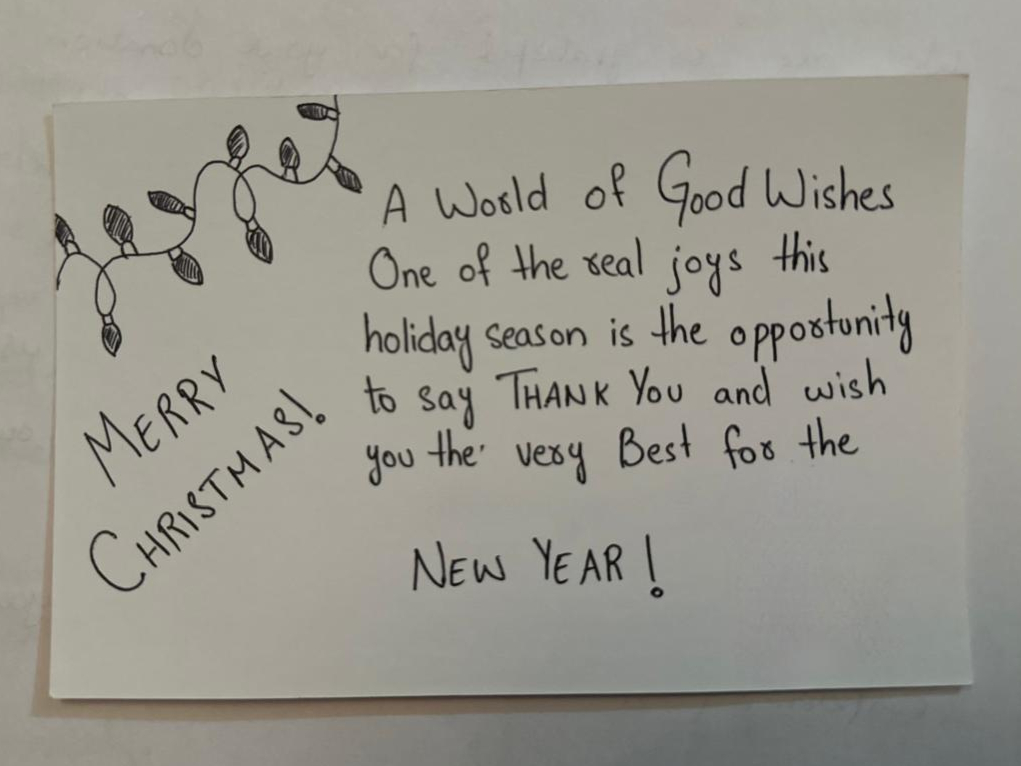 MERRY
CHRISTMAS!
A World of Good Wishes
One of the real joys this
holiday season is the opportunity
to say THANK YOU and wish
you the very Best for the
NEW YEAR!